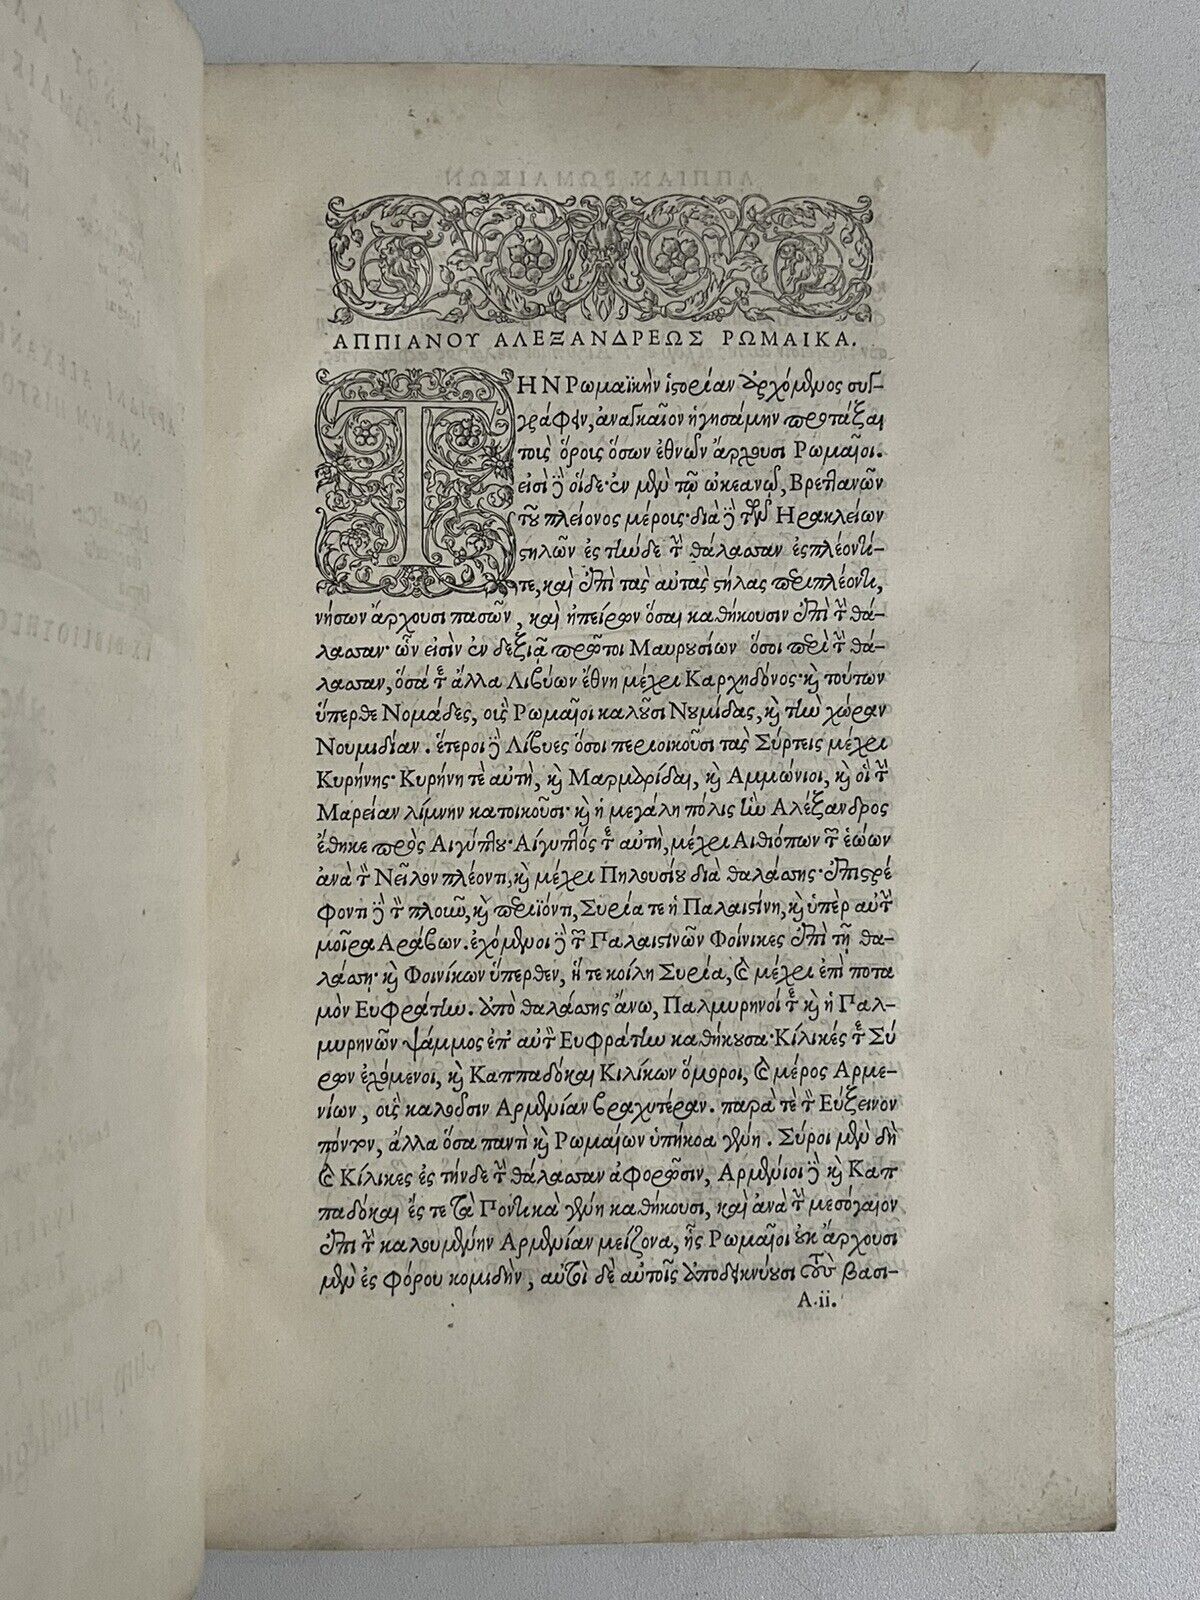 ΑΠΠΙΑΝΟΥ ΑΛΕΞΑΝΔΡΕΩΣ ΡΩΜΑΙΚΑ.
ΤΗΝ Ρωμαϊκὴν ἱστορίαν ἀρχόμενος συγ-
γράφειν, ἀναγκαῖον ἡγησάμην προτάξαι
τοὺς ὅρους ὅσων ἐθνῶν ἄρχουσι Ρωμαῖοι.
εἰσὶ δὲ οἵδε· ἐν μὲν τῷ ὠκεανῷ, Βρεττανῶν
τοῦ πλείονος μέρους· διὰ δὲ τῶν Ηρακλείων
στηλῶν ἐς τήνδε τὴν θάλασσαν ἐσπλέοντί-
τε, καὶ ἐπὶ τὰς αὐτὰς στήλας περιπλέοντι,
νήσων ἄρχουσι πασῶν, καὶ ἠπείρων ὅσαι καθήκουσιν ἐπὶ τὴν θά-
λασσαν· ὧν εἰσὶν ἐν δεξιᾷ πρῶτοι Μαυρουσίων ὅσοι περὶ τὴν θά-
λασσαν, ὅσα τε ἄλλα Λιβύων ἔθνη μέχρι Καρχηδόνος· καὶ τούτων
ὕπερθε Νομάδες, οὓς Ρωμαῖοι καλοῦσι Νουμίδας, καὶ τὴν χώραν
Νουμιδίαν. ἕτεροι δὲ Λίβυες ὅσοι περιοικοῦσι τὰς Σύρτεις μέχρι
Κυρήνης· Κυρήνη τὲ αὐτὴ, καὶ Μαρμαρίδαι, καὶ Αμμώνιοι, καὶ οἱ τὴν
Μαρείαν λίμνην κατοικοῦσι· καὶ ἡ μεγάλη πόλις ἣν Αλέξανδρος
ἔθηκε πρὸς Αἰγύπτου· Αἴγυπτός τε αὐτὴ, μέχρι Αἰθιόπων τῶν ἑώων
ἀνὰ τὸν Νεῖλον πλέοντι, καὶ μέχρι Πηλουσίου διὰ θαλάσσης· ἐπιστρέ
φοντι δὲ τὸν πλοῦν, καὶ περιϊόντι, Συρία τε ἡ Παλαιστίνη, καὶ ὑπὲρ αὐτὴν
μοῖρα Αράβων. ἐχόμενοι δὲ τῶν Παλαιστινῶν Φοίνικες ἐπὶ τῇ θα-
λάσσῃ· καὶ Φοινίκων ὕπερθεν, ἥ τε κοίλη Συρία, καὶ μέχρι ἐπὶ ποτα
μὸν Εὐφράτην. ἀπὸ θαλάσσης ἄνω, Παλμυρηνοί τε καὶ ἡ Παλ-
μυρηνῶν ψάμμος ἐπ' αὐτὸν Εὐφράτην καθήκουσα· Κίλικές τε Σύ
ρων ἐχόμενοι, καὶ Καππαδόκαι Κιλίκων ὅμοροι, καὶ μέρος Αρμε-
νίων, οὓς καλοῦσιν Αρμενίαν βραχυτέραν. παρὰ τὲ τὸν Εὔξεινον
πόντον, ἄλλα ὅσα παντὶ καὶ Ρωμαίων ὑπήκοα γένη. Σύροι μὲν δὴ
καὶ Κίλικες ἐς τήνδε τὴν θάλασσαν ἀφορῶσιν, Αρμένιοι δὲ καὶ Καπ
παδόκαι ἔς τε τὰ Ποντικὰ γένη καθήκουσι, καὶ ἀνὰ τὴν μεσόγαιον
ἐπὶ τὴν καλουμένην Αρμενίαν μείζονα, ἧς Ρωμαῖοι οὐκ ἄρχουσι
μὲν ἐς φόρου κομιδὴν, αὐτοὶ δὲ αὐτοῖς ἀποδεικνύουσι τοὺς βασι-
A.ii.